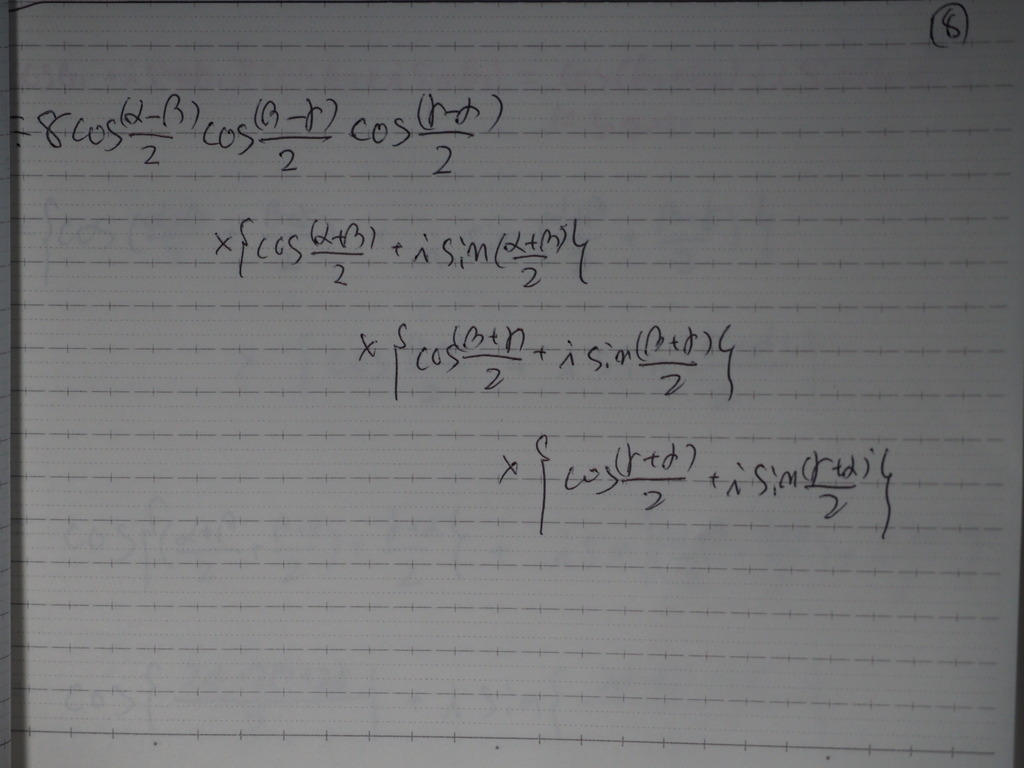 (8)
= 8cos (α-β)/2 cos (β-γ)/2 cos (γ-α)/2
× { cos (α+β)/2 + i sin (α+β)/2 }
× { cos (β+γ)/2 + i sin (β+γ)/2 }
× { cos (γ+α)/2 + i sin (γ+α)/2 }